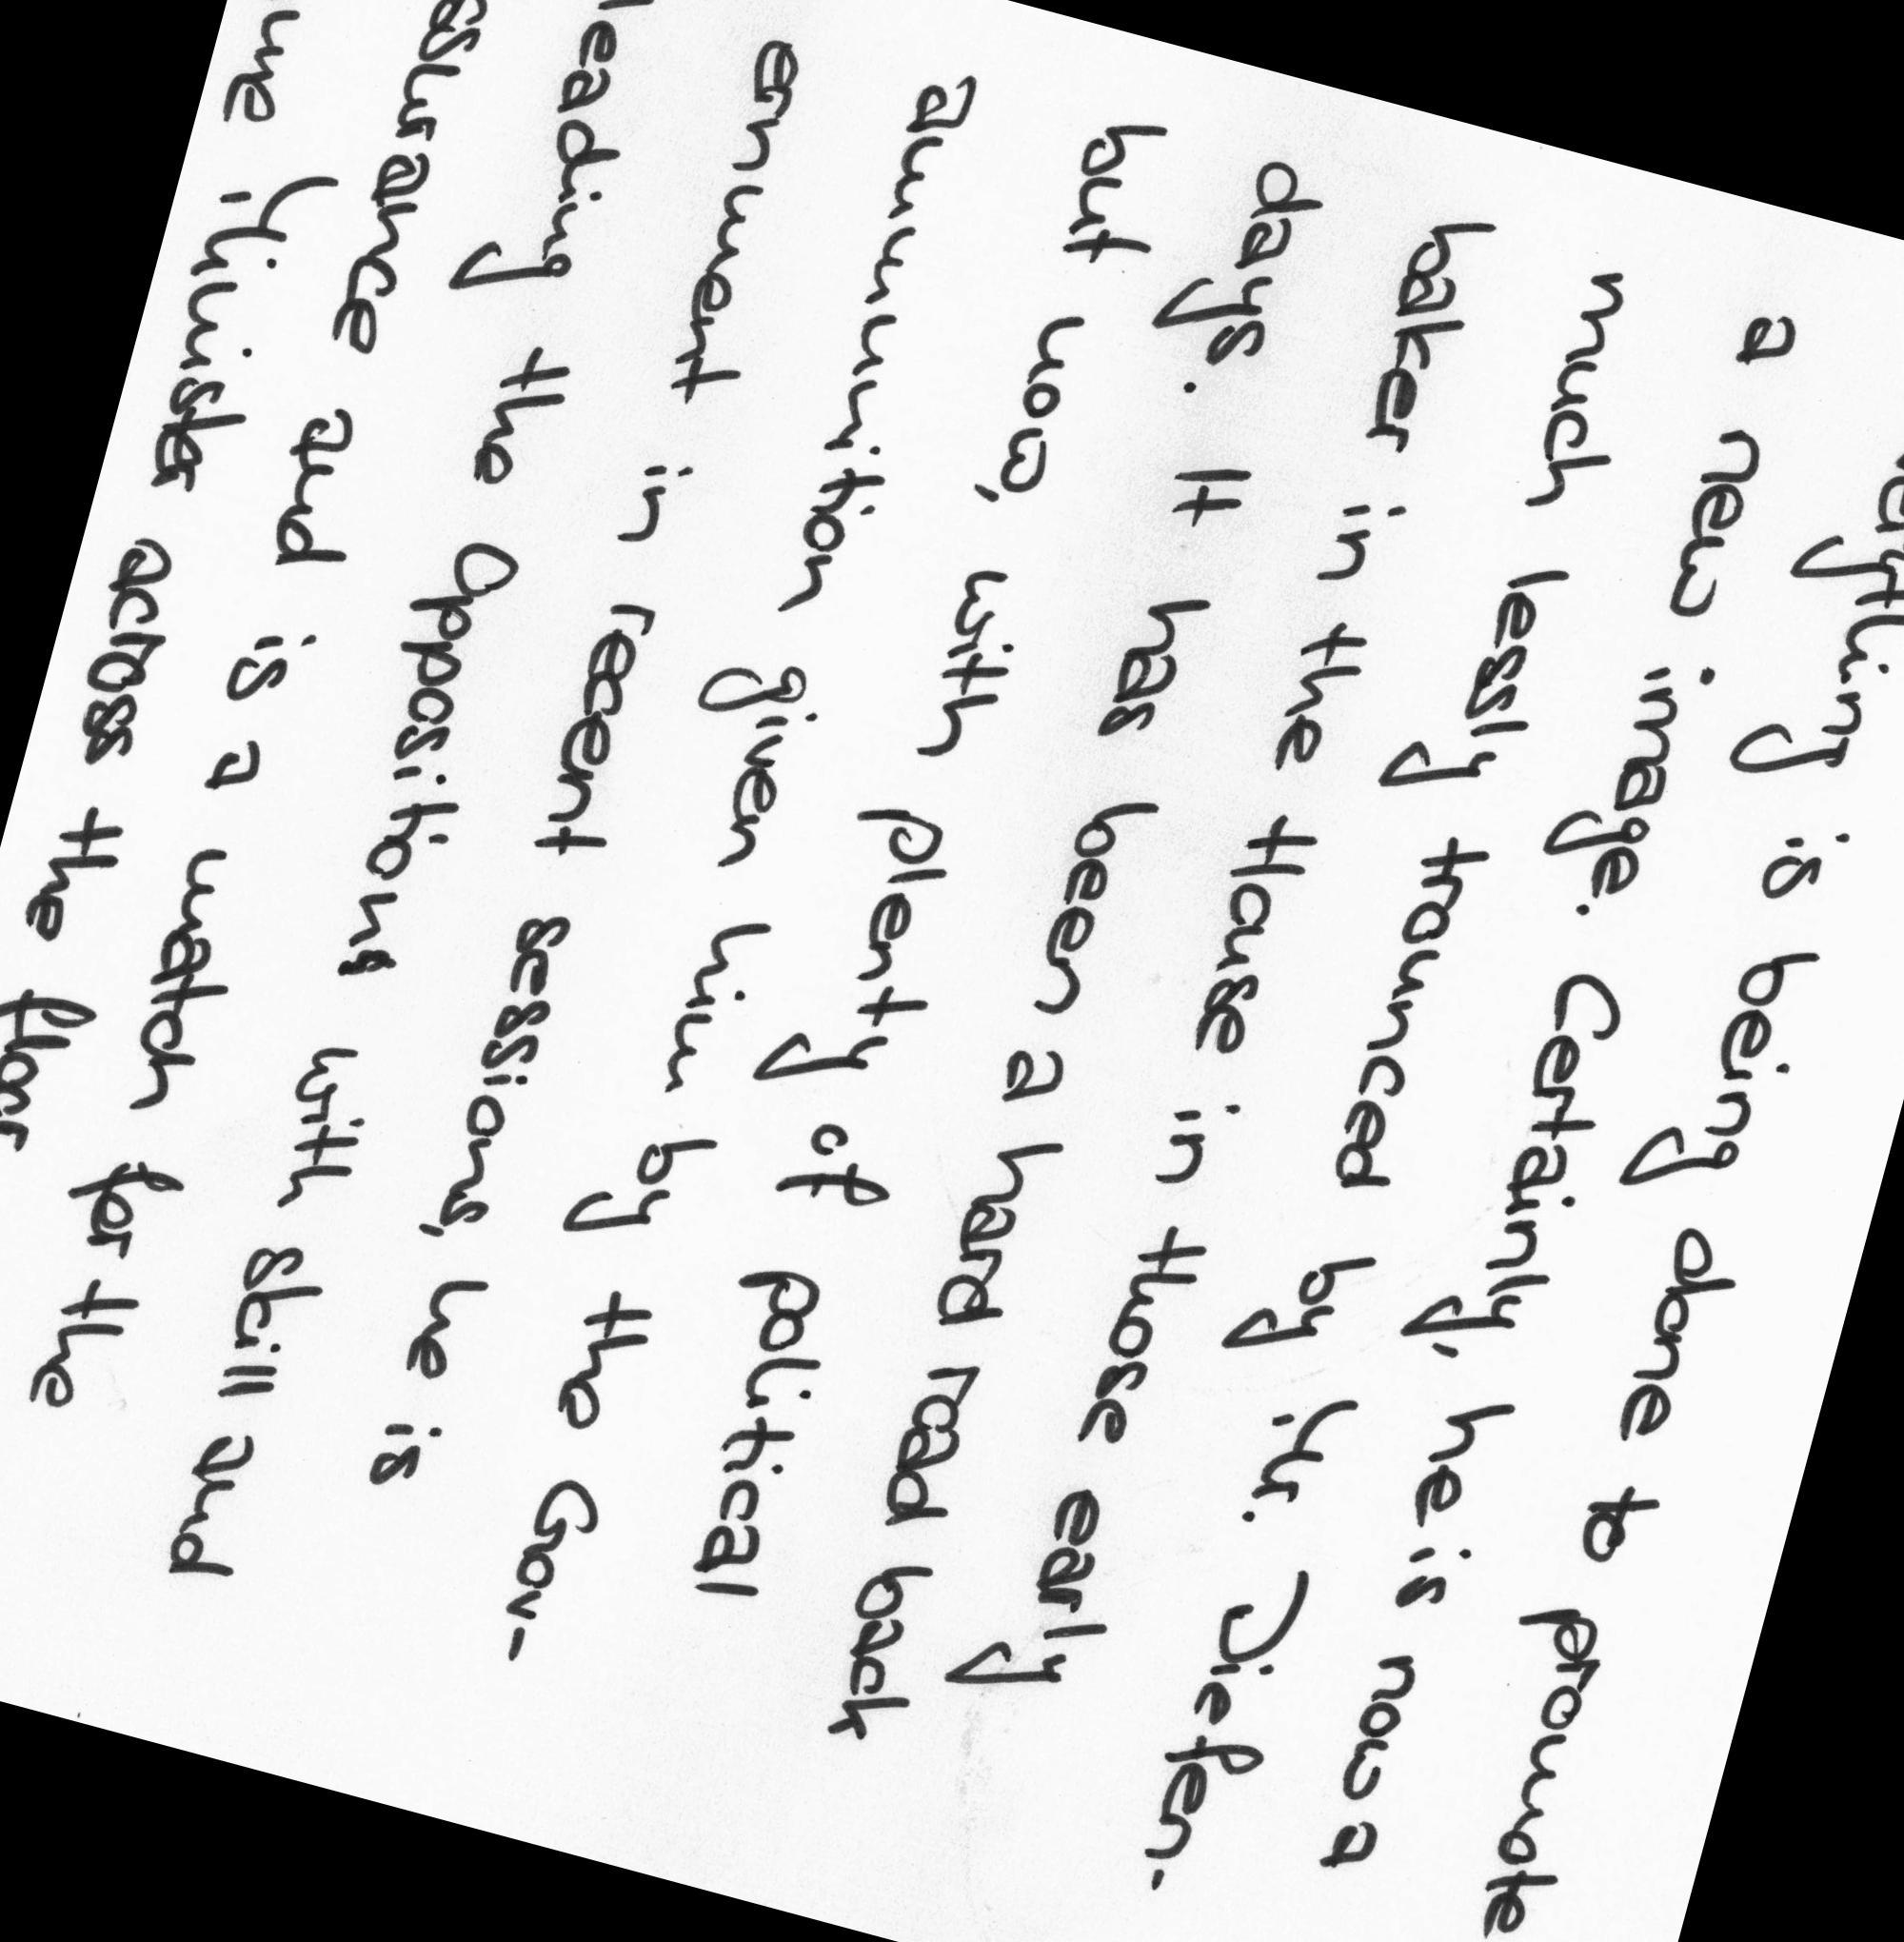 is being done to promote
a new image. Certainly, he is now a
much lessly trounced by Mr. Diefen-
baker in the House in those early
days. It has been a hard road back
but now, with plenty of political
ammunition given him by the Gov-
ernment in recent sessions, he is
leading the Opposition with skill and
assurance and is a match for the
Minister across the floor